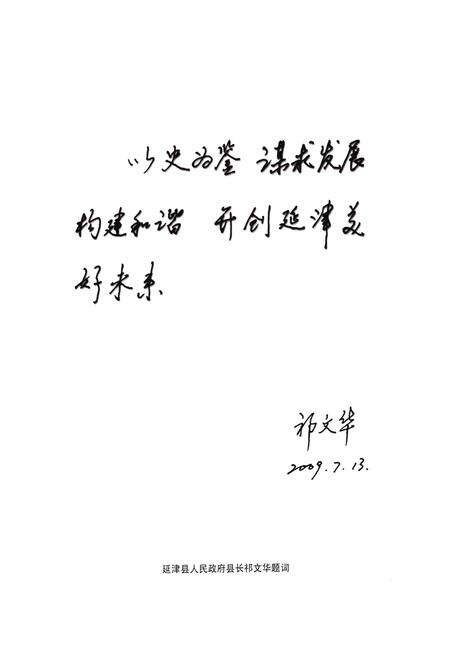 以史为鉴 谋求发展
构建和谐 开创延津美
好未来
祁文华
2009.7.13.
延津县人民政府县长祁文华题词